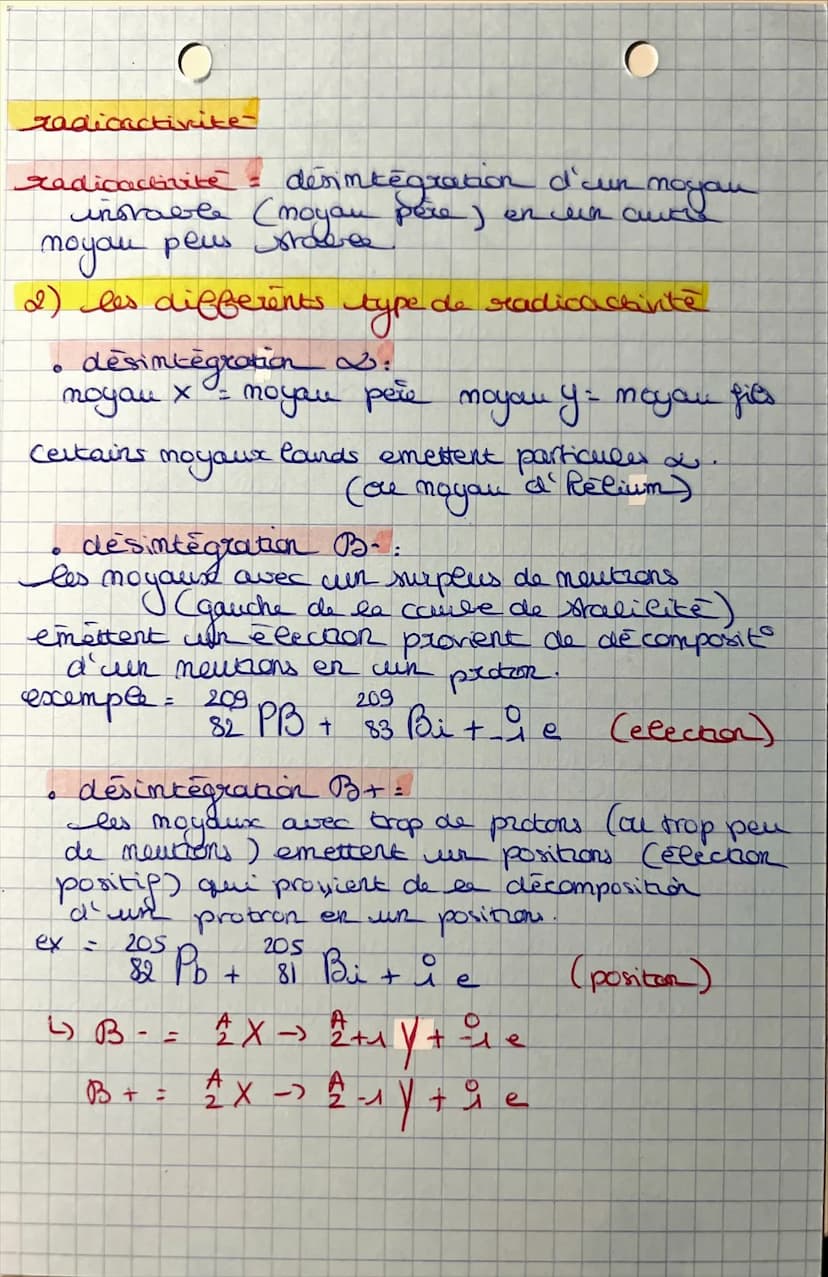 radioactivité
radioactivité = désintégration d'un noyau
instable (noyau père) en un autre
noyau plus stable
2) les différents type de radioactivité
• désintégration α :
noyau x = noyau père noyau y = noyau fils
Certains noyaux lourds emettent particules α.
(ou noyau d'hélium)
• désintégration B- :
les noyaux avec un surplus de neutrons
(gauche de la courbe de stabilité)
emettent un électron provient de décomposit°
d'un neutrons en un proton.
exemple = ²⁰⁹₈₂ PB + ²⁰⁹₈₃ Bi + ⁰₋₁ e (electron)
• désintégration B+ =
les noyaux avec trop de protons (ou trop peu
de neutrons) emettent un positrons (électron
positif) qui provient de la décomposition
d'un protron en un positron.
ex = ²⁰⁵₈₂ Pb + ²⁰⁵₈₁ Bi + ⁰₁ e (positon)
↳ B - = ᴬ₂ X → ᴬ₂₊₁ Y + ⁰₋₁ e
B + = ᴬ₂ X → ᴬ₂₋₁ Y + ⁰₁ e